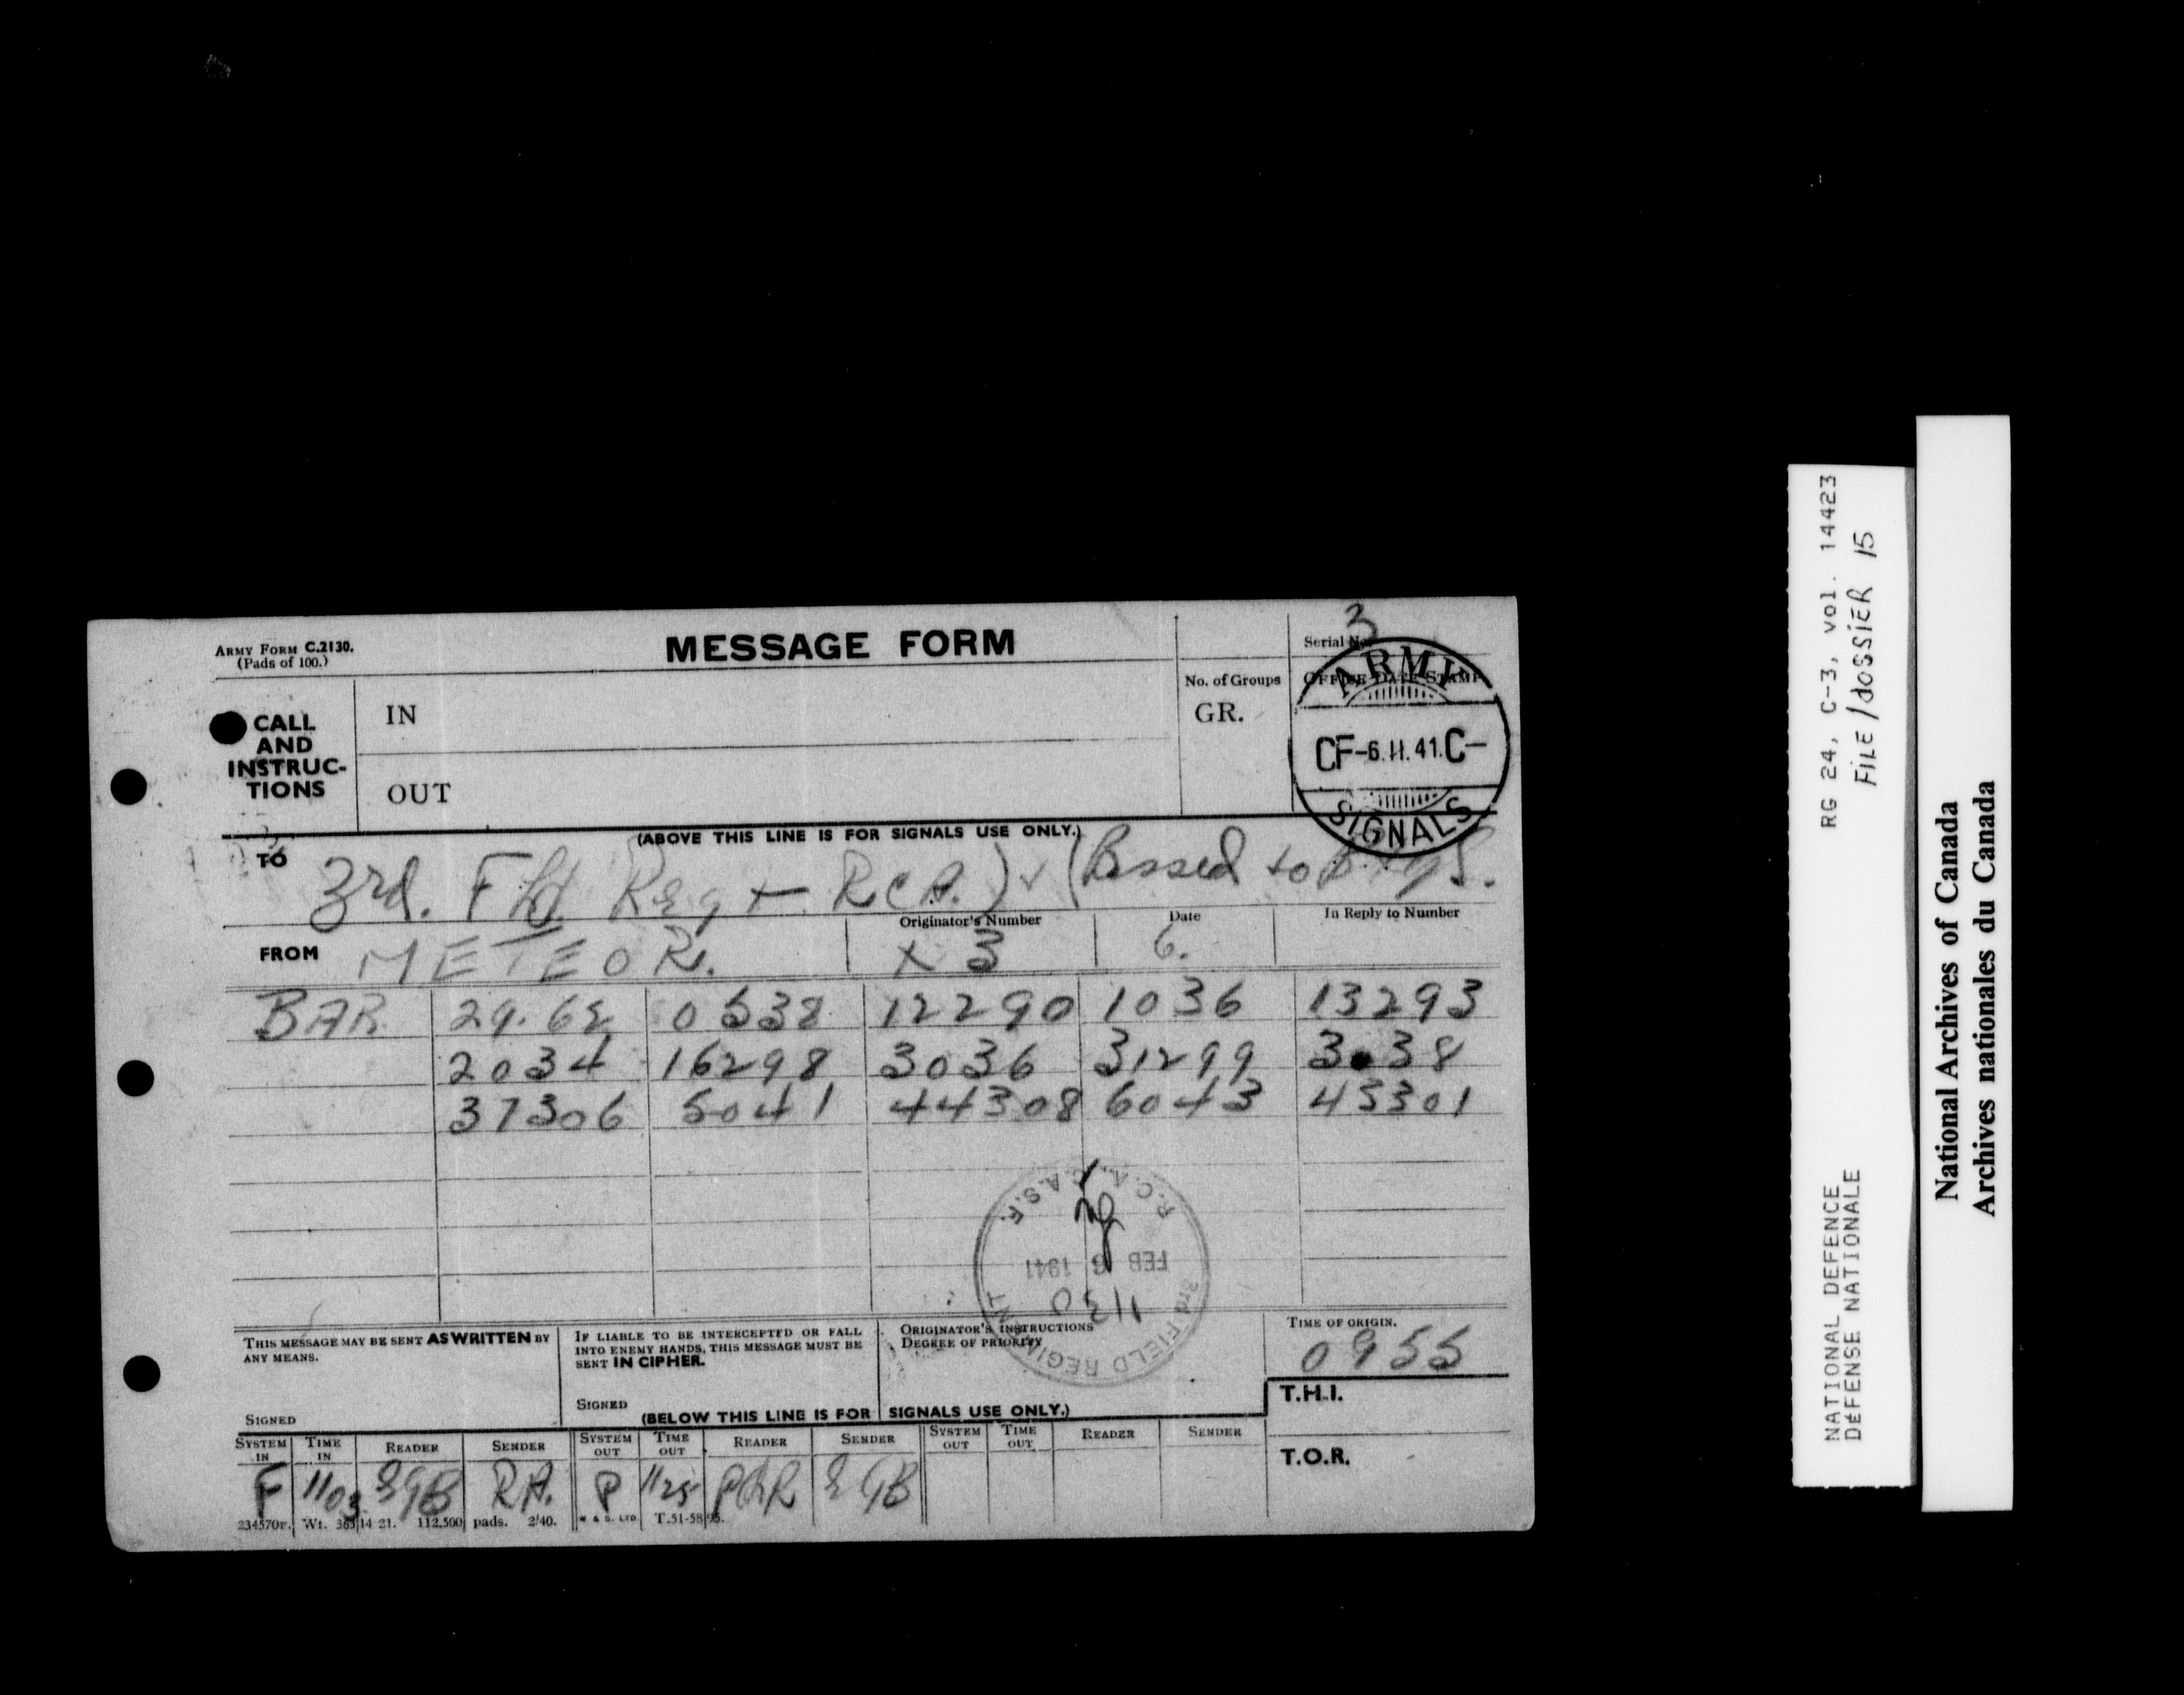 ARMY FORM C.2130.
(Pads of 100.)
MESSAGE FORM
Serial No. 3
No. of Groups
GR.
OFFICE DATE STAMP
ARMY
CF-6.II.41.C-
SIGNALS
CALL
AND
INSTRUC-
TIONS
IN
OUT
(ABOVE THIS LINE IS FOR SIGNALS USE ONLY.)
TO 3rd. Fld. Regt. RCA.) (Passed to
FROM METEOR.
Originator's Number
X 3
Date
6.
In Reply to Number
BAR 29.62 0538 12290 1036 13293
2034 16298 3036 31299 3038
37306 5041 44308 6043 45301
3rd FIELD REGIMENT R.C.A. C.A.S.F.
FEB 6 1941
1130
THIS MESSAGE MAY BE SENT AS WRITTEN BY
ANY MEANS.
SIGNED
IF LIABLE TO BE INTERCEPTED OR FALL
INTO ENEMY HANDS, THIS MESSAGE MUST BE
SENT IN CIPHER.
SIGNED
ORIGINATOR'S INSTRUCTIONS
DEGREE OF PRIORITY
TIME OF ORIGIN.
0955
T.H.I.
T.O.R.
(BELOW THIS LINE IS FOR SIGNALS USE ONLY.)
SYSTEM IN TIME IN READER SENDER SYSTEM OUT TIME OUT READER SENDER SYSTEM OUT TIME OUT READER SENDER
F 1103 EGB RA. P 1125 EGB
234570F. Wt. 36314 21. 112,500 pads. 2/40. W & S. LTD. T.51-58
RG 24, C-3, vol. 14423
FILE/dOSSiER 15
NATIONAL DEFENCE
DÉFENSE NATIONALE
National Archives of Canada
Archives nationales du Canada